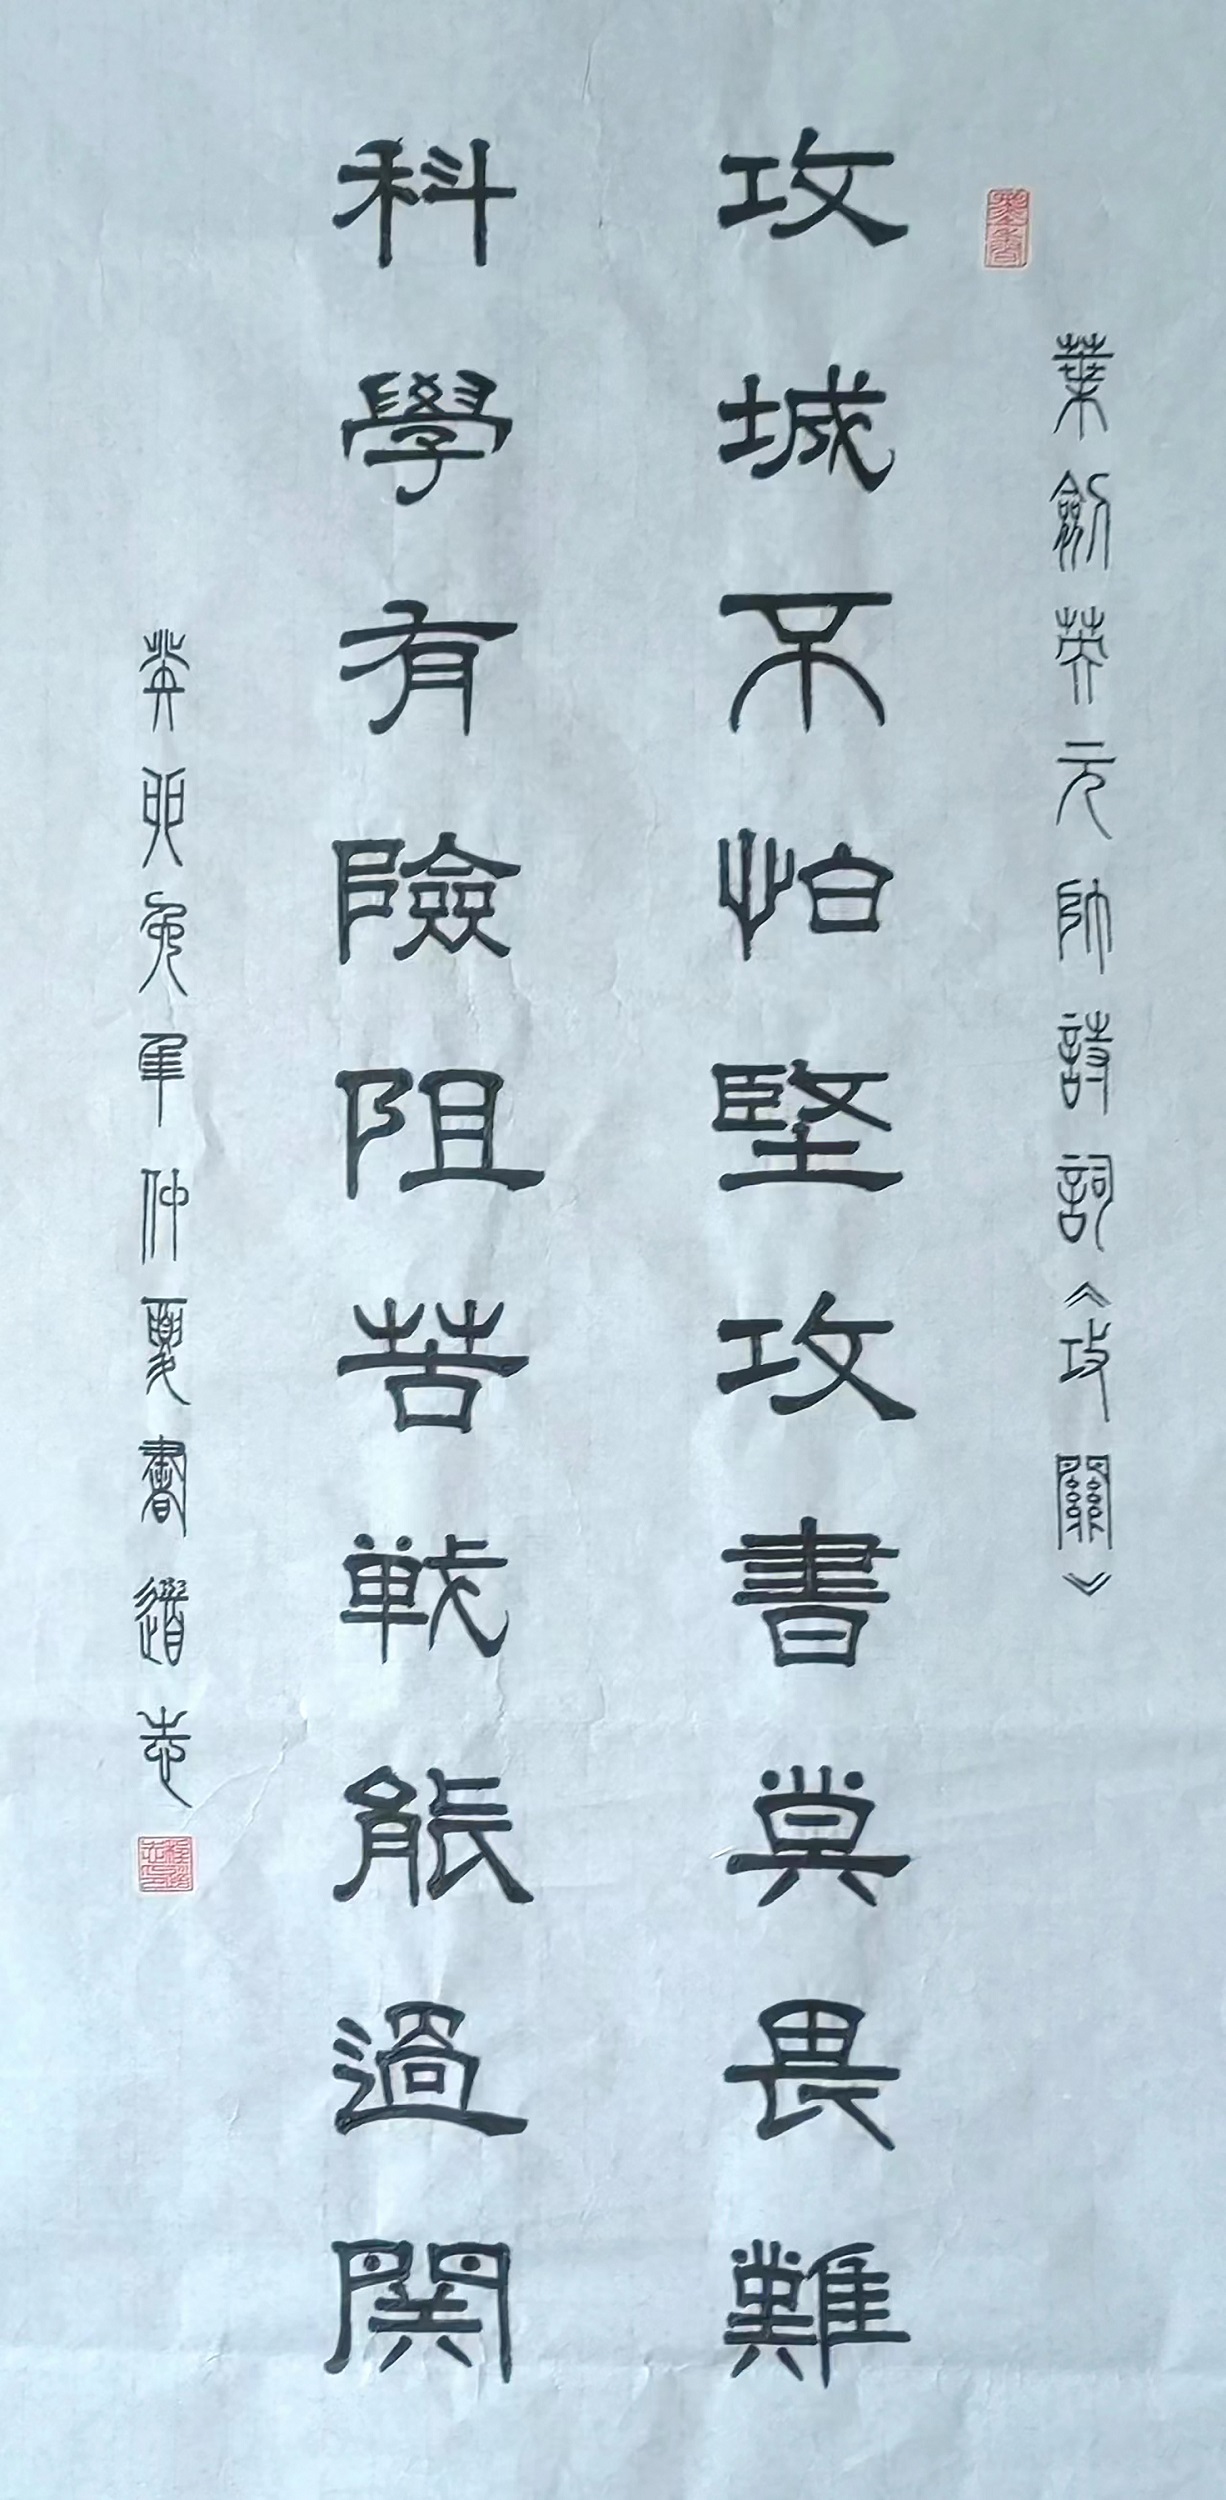 葉劍英元帥詩詞《攻關》
攻城不怕堅攻書莫畏難
科學有險阻苦戰能過關
癸卯兔年仲夏書道志
墨香